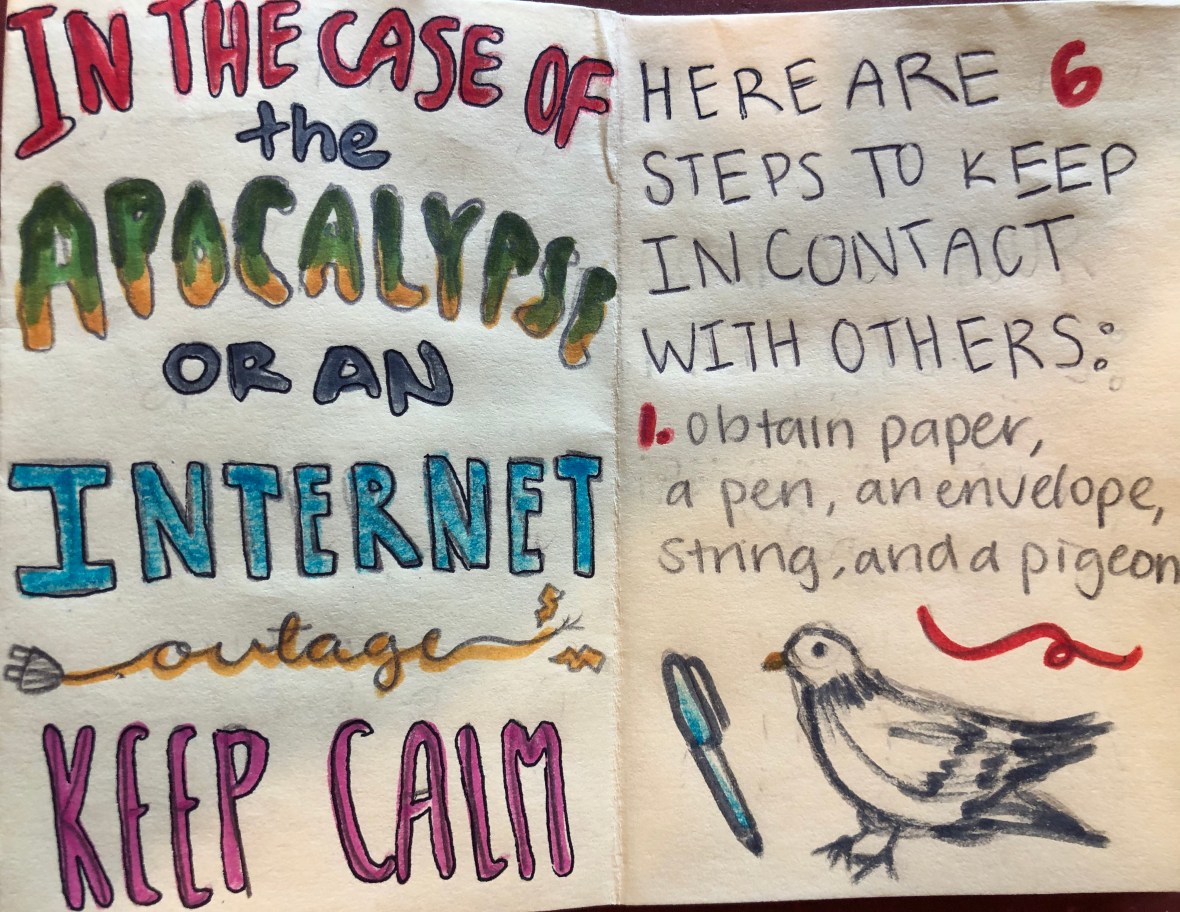 IN THE CASE OF
the
APOCALYPSE
OR AN
INTERNET
outage
KEEP CALM
HERE ARE 6
STEPS TO KEEP
IN CONTACT
WITH OTHERS:
1. obtain paper,
a pen, an envelope,
string, and a pigeon